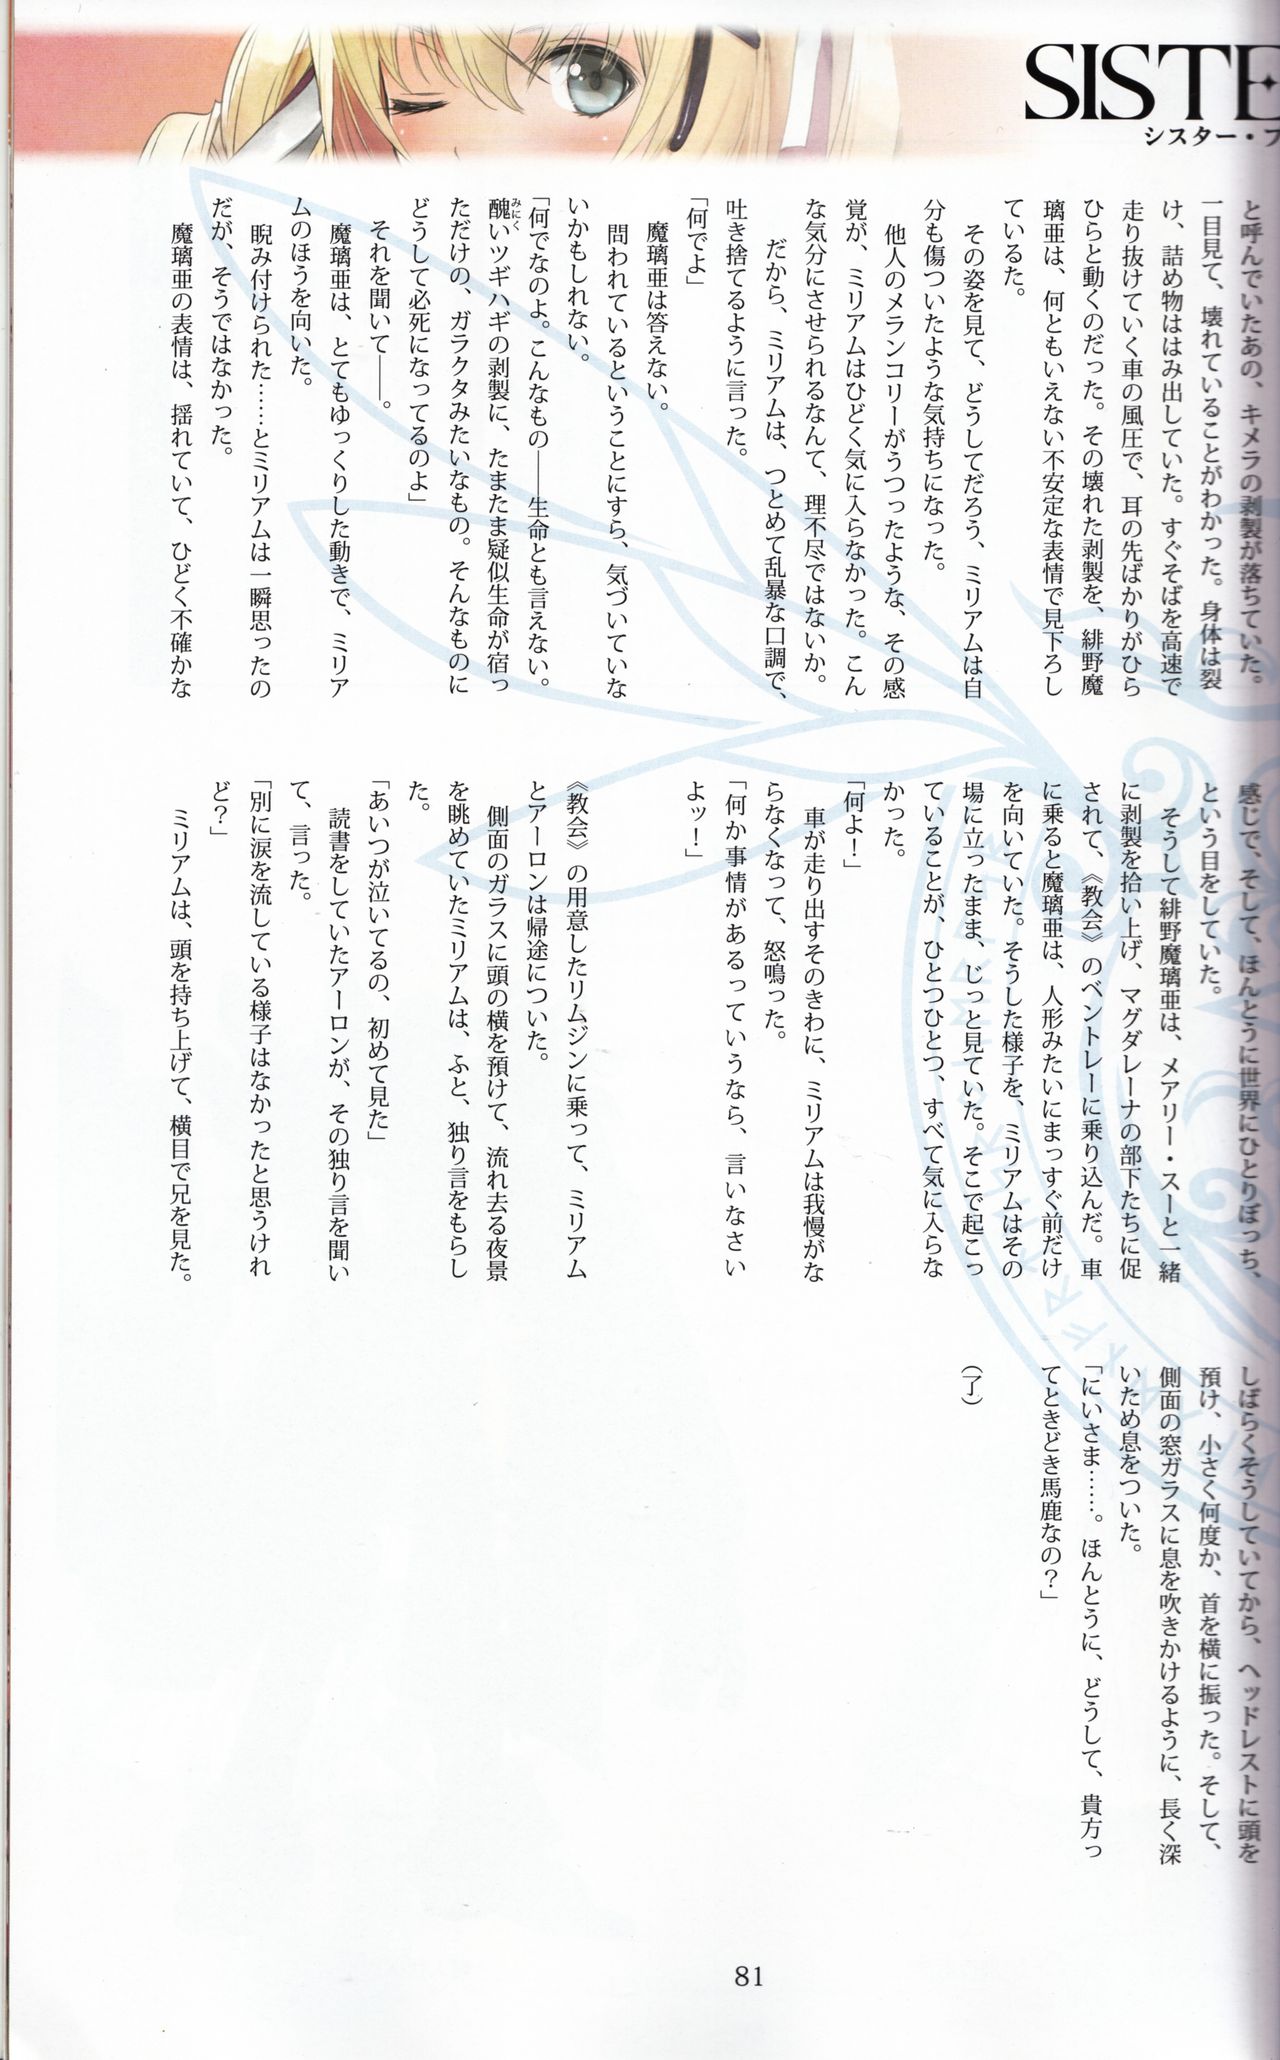 SISTE
シスター・フ
と呼んでいたあの、キメラの剥製が落ちていた。
一目見て、壊れていることがわかった。身体は裂
け、詰め物ははみ出していた。すぐそばを高速で
走り抜けていく車の風圧で、耳の先ばかりがひら
ひらと動くのだった。その壊れた剥製を、緋野魔
璃亜は、何ともいえない不安定な表情で見下ろし
ているた。
　その姿を見て、どうしてだろう、ミリアムは自
分も傷ついたような気持ちになった。
　他人のメランコリーがうつったような、その感
覚が、ミリアムはひどく気に入らなかった。こん
な気分にさせられるなんて、理不尽ではないか。
　だから、ミリアムは、つとめて乱暴な口調で、
吐き捨てるように言った。
「何でよ」
　魔璃亜は答えない。
　問われているということにすら、気づいていな
いかもしれない。
「何でなのよ。こんなもの――生命とも言えない。
醜みにくいツギハギの剥製に、たまたま疑似生命が宿っ
ただけの、ガラクタみたいなもの。そんなものに
どうして必死になってるのよ」
　それを聞いて――。
　魔璃亜は、とてもゆっくりした動きで、ミリア
ムのほうを向いた。
　睨み付けられた……とミリアムは一瞬思ったの
だが、そうではなかった。
　魔璃亜の表情は、揺れていて、ひどく不確かな
感じで、そして、ほんとうに世界にひとりぼっち、
という目をしていた。
　そうして緋野魔璃亜は、メアリー・スーと一緒
に剥製を拾い上げ、マグダレーナの部下たちに促
されて、《教会》のベントレーに乗り込んだ。車
に乗ると魔璃亜は、人形みたいにまっすぐ前だけ
を向いていた。そうした様子を、ミリアムはその
場に立ったまま、じっと見ていた。そこで起こっ
ていることが、ひとつひとつ、すべて気に入らな
かった。
「何よ！」
　車が走り出すそのきわに、ミリアムは我慢がな
らなくなって、怒鳴った。
「何か事情があるっていうなら、言いなさい
よッ！」
《教会》の用意したリムジンに乗って、ミリアム
とアーロンは帰途についた。
　側面のガラスに頭の横を預けて、流れ去る夜景
を眺めていたミリアムは、ふと、独り言をもらし
た。
「あいつが泣いてるの、初めて見た」
　読書をしていたアーロンが、その独り言を聞い
て、言った。
「別に涙を流している様子はなかったと思うけれ
ど？」
　ミリアムは、頭を持ち上げて、横目で兄を見た。
しばらくそうしていてから、ヘッドレストに頭を
預け、小さく何度か、首を横に振った。そして、
側面の窓ガラスに息を吹きかけるように、長く深
いため息をついた。
「にいさま……。ほんとうに、どうして、貴方っ
てときどき馬鹿なの？」
（了）
81